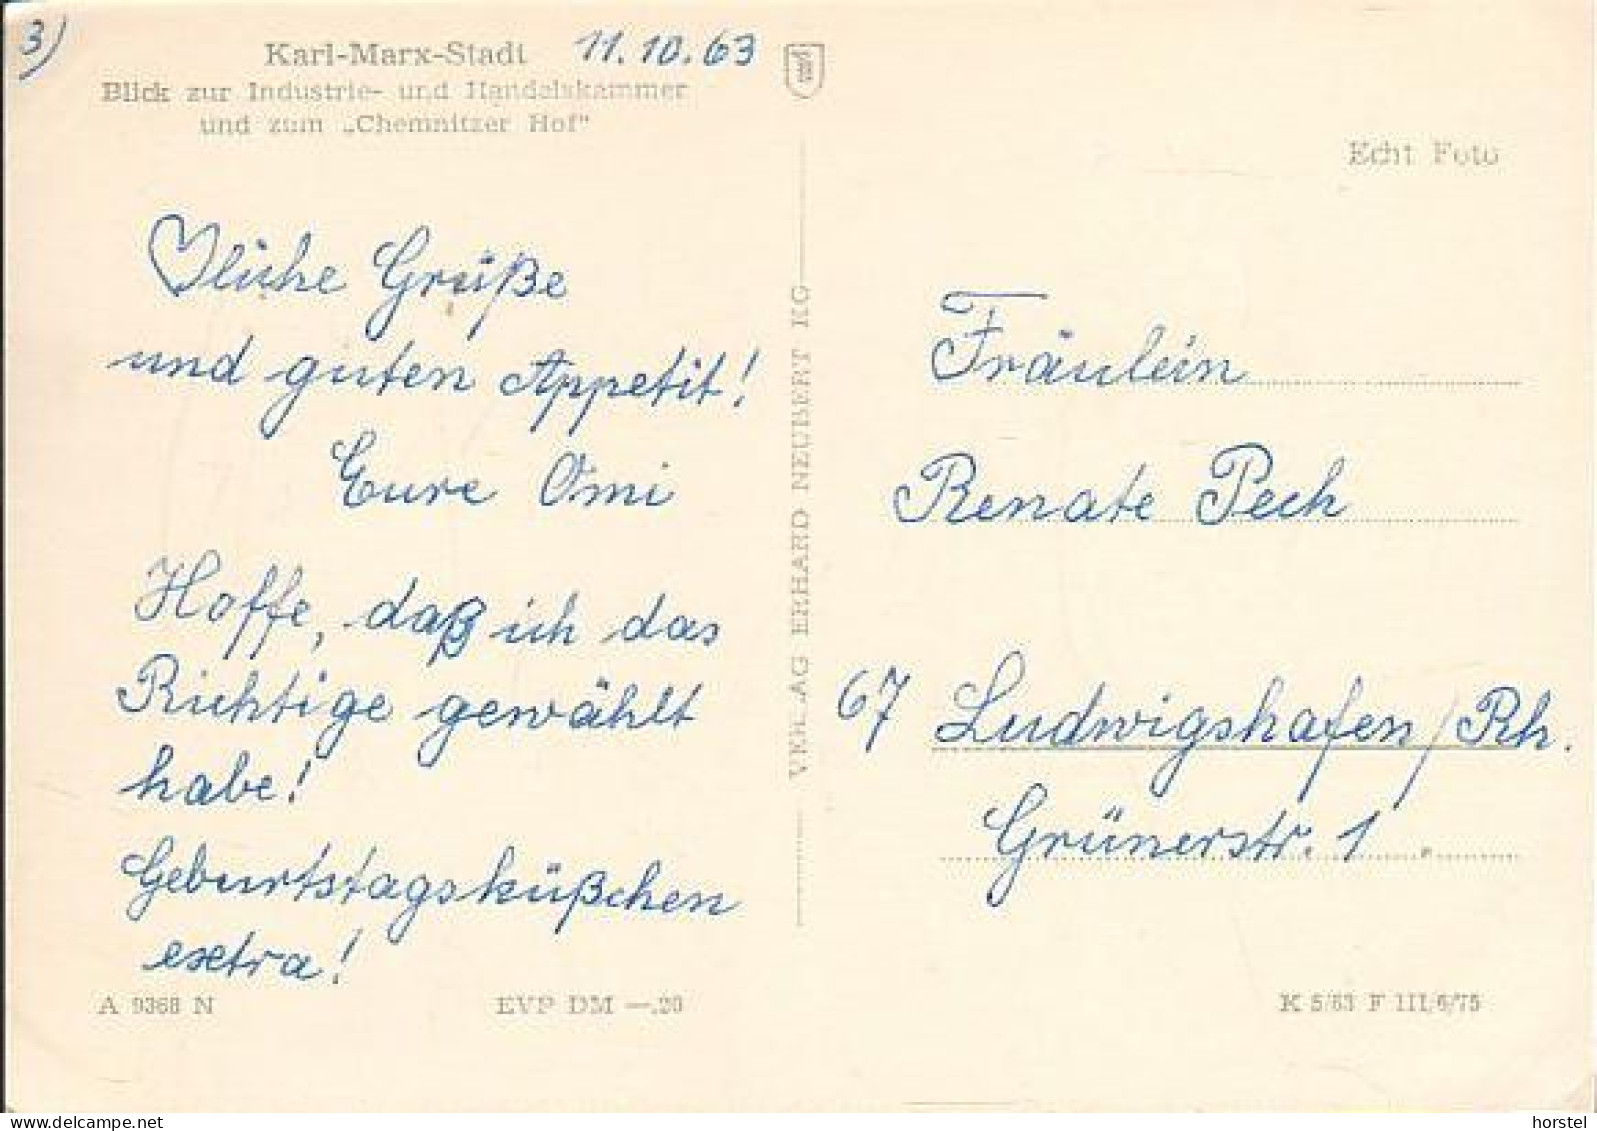 3)
Karl-Marx-Stadt 11.10.63
Blick zur Industrie- und Handelskammer
und zum „Chemnitzer Hof"
Echt Foto
♡liche Grüße
und guten Appetit!
Eure Omi
Hoffe, daß ich das
Richtige gewählt
habe!
Geburtstagsküßchen
extra!
A 9368 N
EVP DM —.20
VERLAG ERHARD NEUBERT KG
Fräulein
Renate Pech
67 Ludwigshafen/Rh.
Grünerstr. 1
K 5/63 F III/6/75
www.delcampe.net
horstel